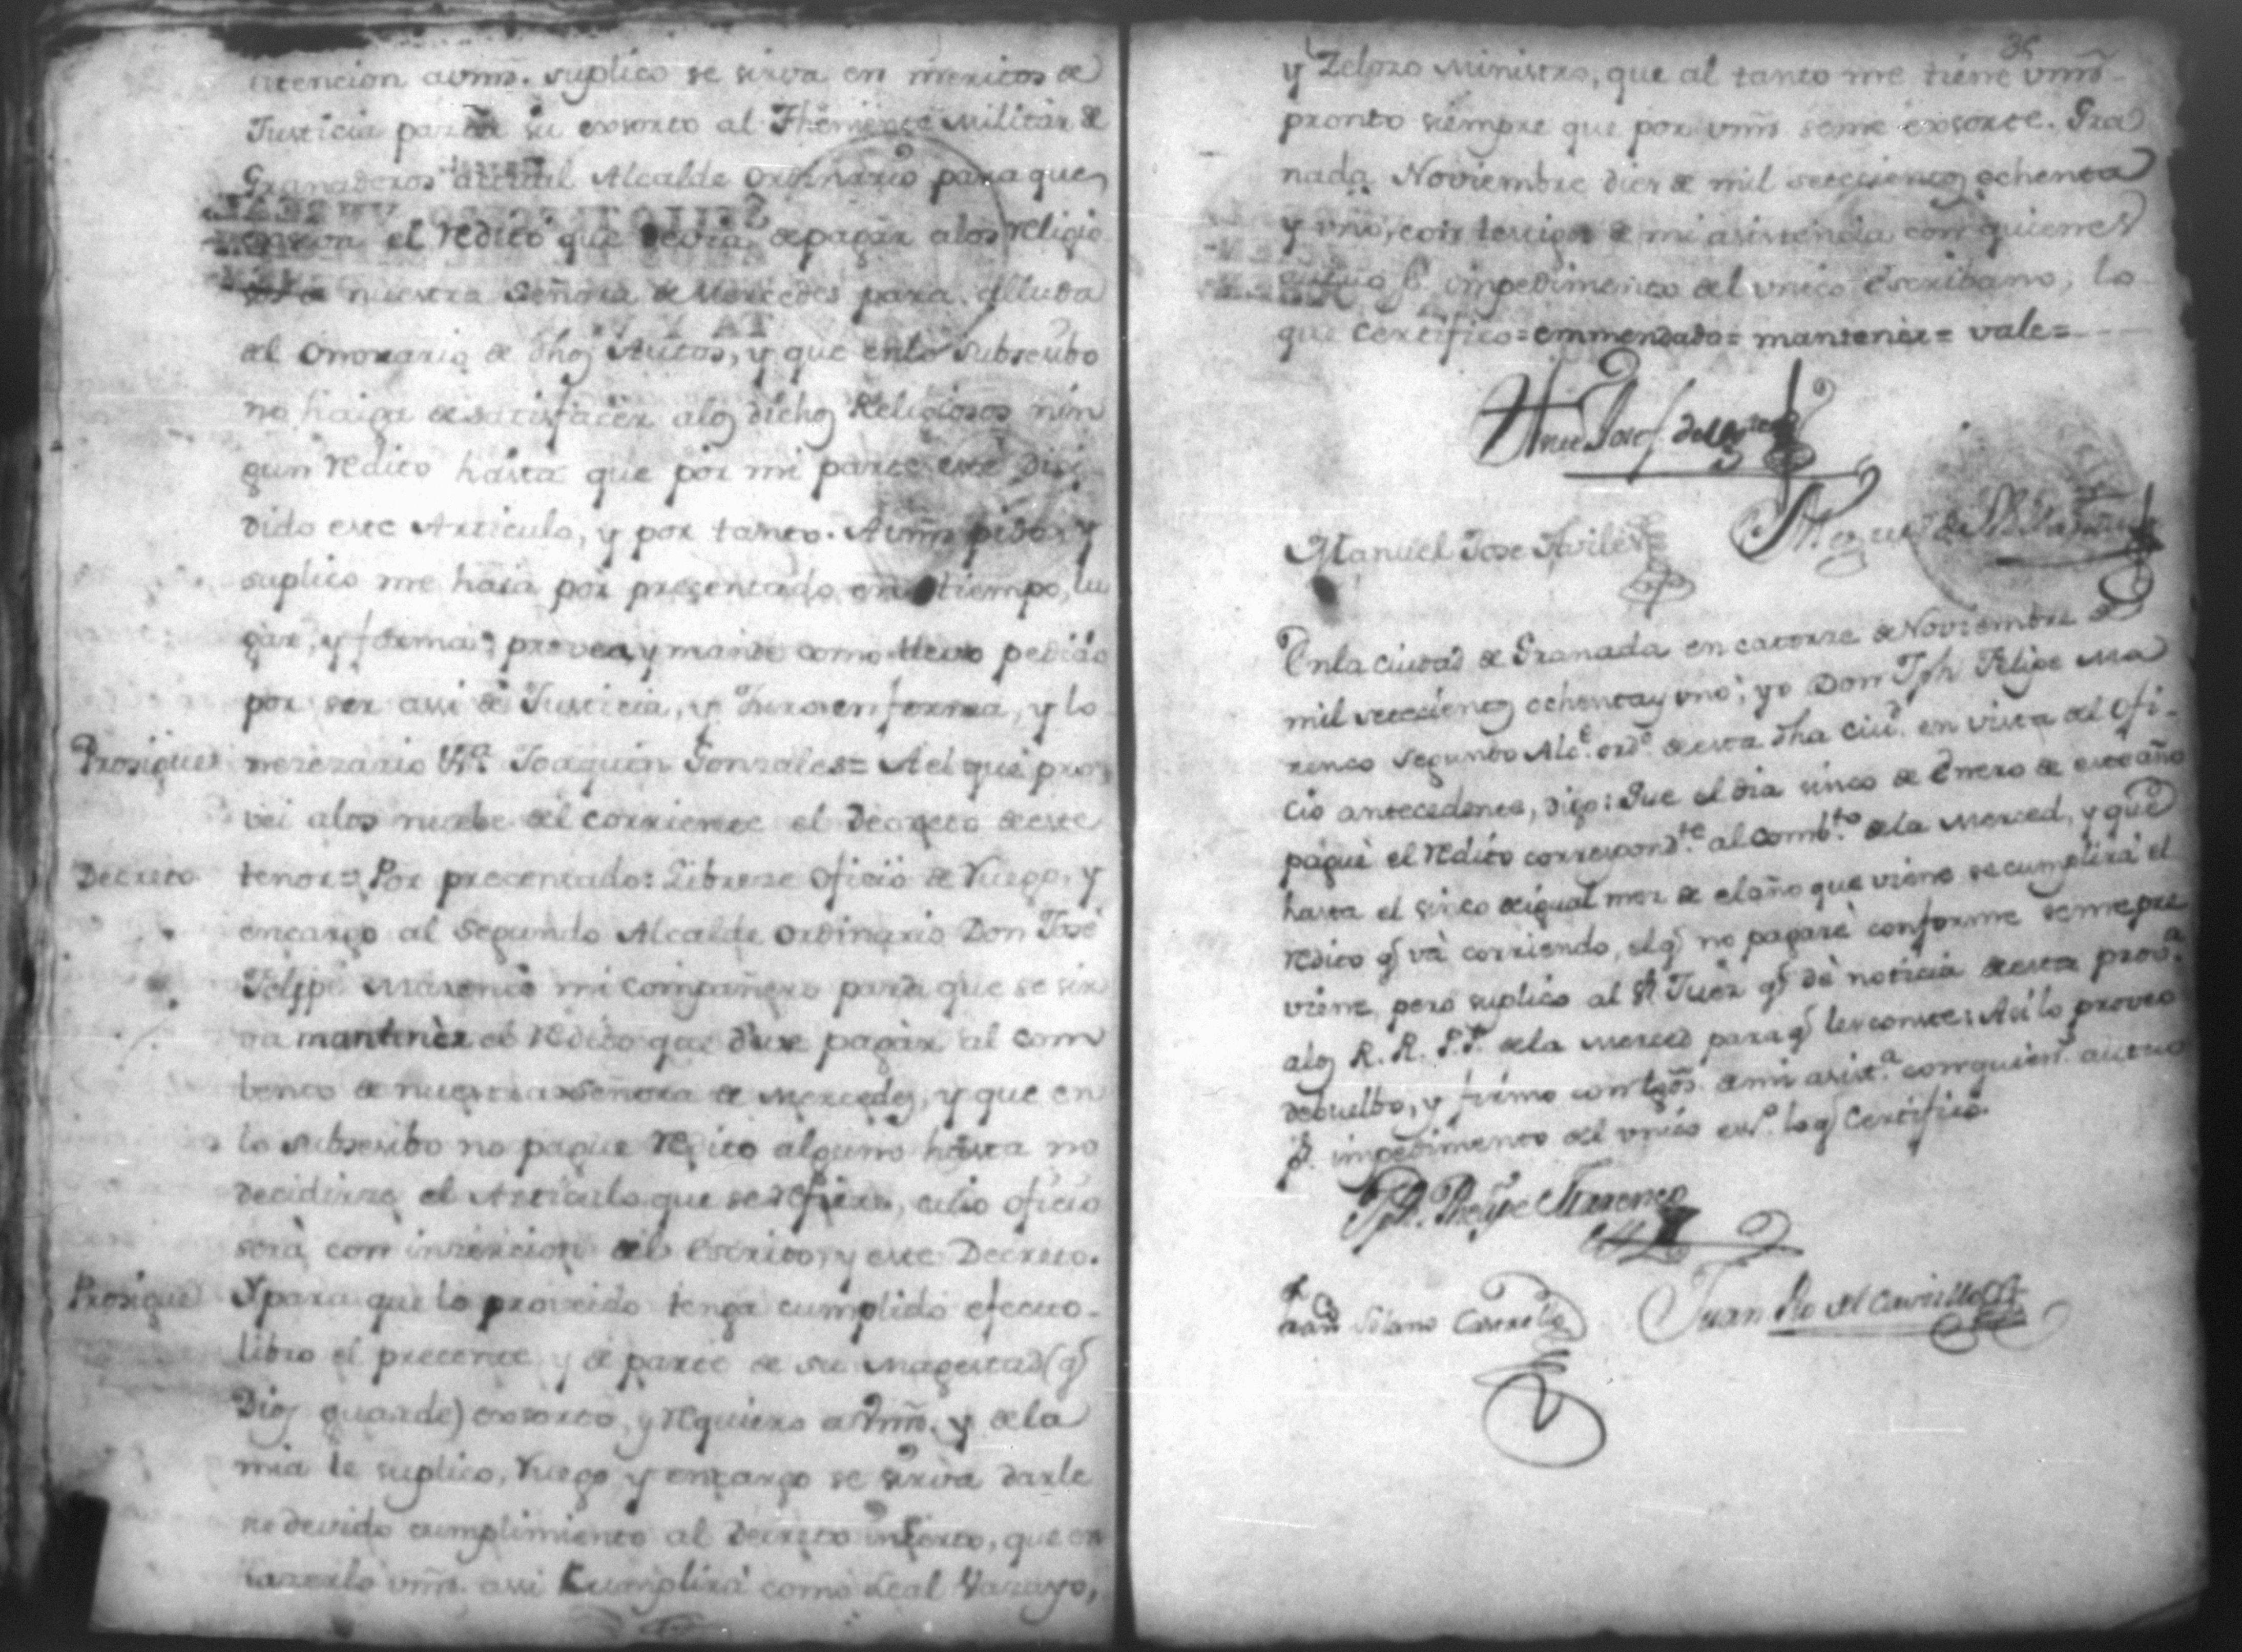 atencion avmrd. suplico se sirva en meritos de
Justicia
su exsorto al Theniente Militar de
Granaderos actual Alcalde ordinario para que
el redito que devia de pagar alos religio
sos de nuestra Señora de Mercedes para alluda
del Onorario de dhos Autos, y que enlo subsesibo
no haiga de satisfacer alos dichos Religiosos nin
gun redito hasta que por mi parte esté desi
dido este Articulo, y por tanto. A vmrd. pido, y
suplico me haia por presentado en tiempo, lu
gar, y forma; provea, y mande como llevo pedido
por ser assi de Justicia, y Juro en forma, y lo
Prosigue nesezario Va. Joaquin Gonzales= Ael que pro
vei alos nuebe del corriente el Decreto deeste
Decreto tenor= Por precentado: Librese oficio de Ruego, y
encargo al Segundo Alcalde ordinario Don José
Felipe Marenco mi compañero para que se sir
va mantener el redito que deve pagar al com
bento de nuestra Señora de Mercedes, y que en
lo subsesibo no pague redito alguno hasta no
decidirse el Articulo que se refiere, cuio oficio
será con insercion del Escrito, y este Decreto.
Prosigue Y para que lo proveido tenga cumplido efecto
libro el precente y de parte de su Magestad (q
Dios guarde) exsorto, y requiero a Vmrd. y dela
mia le suplico, Ruego y encargo se sirva darle
su devido cumplimiento al Decreto inserto, que en
hazerlo vmrd. assi Cumplirá como Leal Vazayo,
35
y Zelozo Ministro, que al tanto me tiene vmrd.
pronto siempre que por vmrd. seme exsorte. Gra
nada Noviembre dies de mil setecientos ochenta
y uno, con testigos de mi asistencia con quienes
actuo pr. impedimento del vnico Escribano, lo
que Certifico= emmendado= mantener= vale=
Manuel Jose Aviles
Enla Ciudad de Granada en catorze de Noviembre de
mil setecientos ochenta y uno; yo Don Jph Felipe Ma
renco segundo Alce. ordo. deesta dha Ciud. en vista del ofi-
cio antecedente, digo: Que el dia sinco de Enero de este año
pagué el redito correspondte. al Combto. dela Merced, y que
hasta el sinco deigual mes de el año que viene se cumplirá el
redito q va corriendo, el q no pagaré conforme seme pre
viene, pero suplico al Sr Juez q dé noticia deesta provа.
alos R. R. P.P. dela Merced para q les conste: Asi lo proveo
debuelbo, y firmo con tgos. demi asista. comquien. actuo
pr. impedimento del vnico esno. lo q Certifico.
Jph. Phelipe Marenco
Solano Casrello
Juan